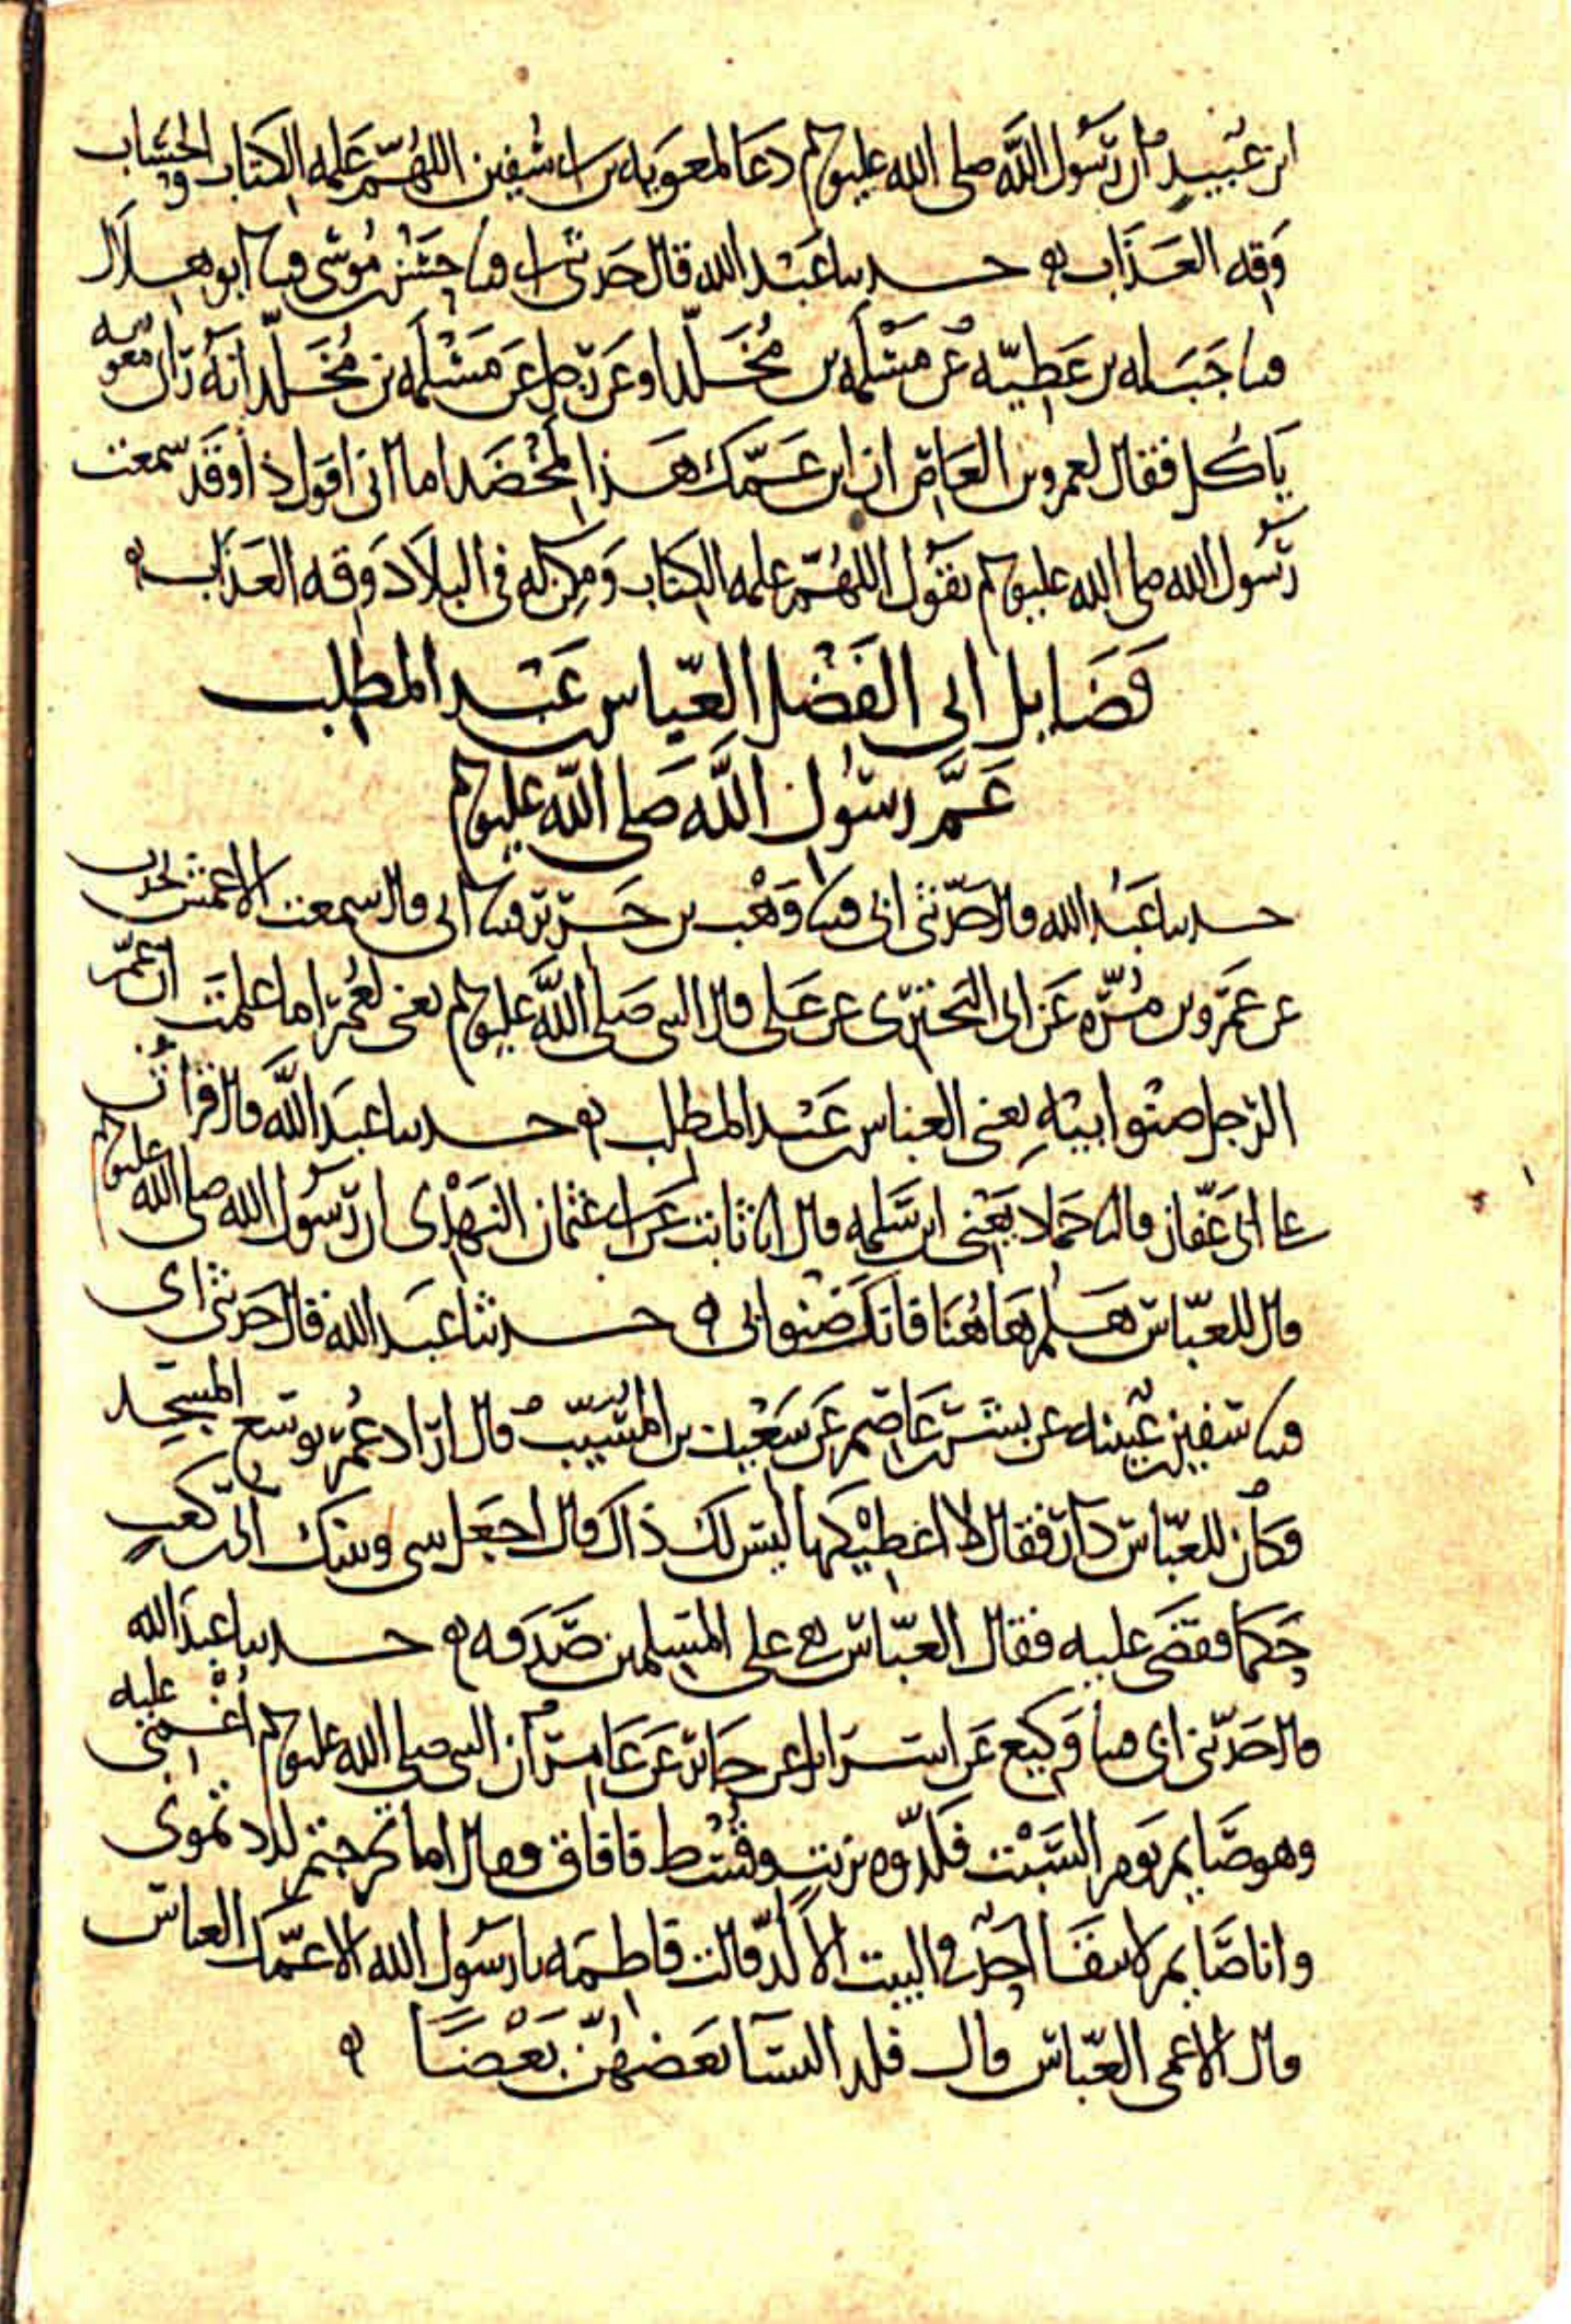 ابن عبيد أن رسول الله صلى الله عليه وسلم دعا لمعويه بن ابي سفين اللهم علمه الكتاب والحساب
وقه العذاب ه حدثنا عبد الله قال حدثني ابي قثنا حسن بن موسى قثنا ابو هلال
قثنا جبله بن عطيه عن مسلمه بن مخلد او عن رجل عن مسلمه بن مخلد انه رأى معويه
يأكل فقال لعمرو بن العاص ان ابن عمك هذا لمخضد اما اني اقول ذا وقد سمعت
رسول الله صلى الله عليه وسلم يقول اللهم علمه الكتاب ومكن له في البلاد وقه العذاب ه
فضايل ابي الفضل العباس بن عبد المطلب
عم رسول الله صلى الله عليه وسلم
حدثنا عبد الله قال حدثني ابي قثنا وهب بن جرير قثنا ابي قال سمعت الاعمش يحدث
عن عمرو بن مره عن ابي البختري عن علي قال النبي صلى الله عليه وسلم يعني لعمر اما علمت ان عم
الرجل صنو ابيه يعني العباس بن عبد المطلب ه حدثنا عبد الله قال قرأت
علي ابي عفان قال نا حماد يعني ابن سلمه قال انا ثابت عن ابي عثمان النهدي ان رسول الله صلى الله عليه وسلم
قال للعباس هلم هاهنا فانك صنو ابي ه حدثنا عبد الله قال حدثني ابي
قثنا سفين بن عيينه عن بشر بن عاصم عن سعيد بن المسيب قال اراد عمر يوسع المسجد
وكان للعباس دار فقال لا اعطيكها ليس لك ذاك قال اجعل بيني وبينك ابي بن كعب
حكما فقضى عليه فقال العباس هي على المسلمين صدقه ه حدثنا عبد الله
قال حدثني ابي قثنا وكيع عن اسرايل عن جابر عن عامر ان النبي صلى الله عليه وسلم أغمي عليه
وهو صايم يوم السبت فلدوه بزيت وقسط فافاق وقال اما تحرجتم تلدوني
وانا صايم لا يبقا احد في البيت الا لد قالت فاطمه يا رسول الله الا عمك العباس
قال الا عمي العباس قال فلد النسا بعضهن بعضا ه